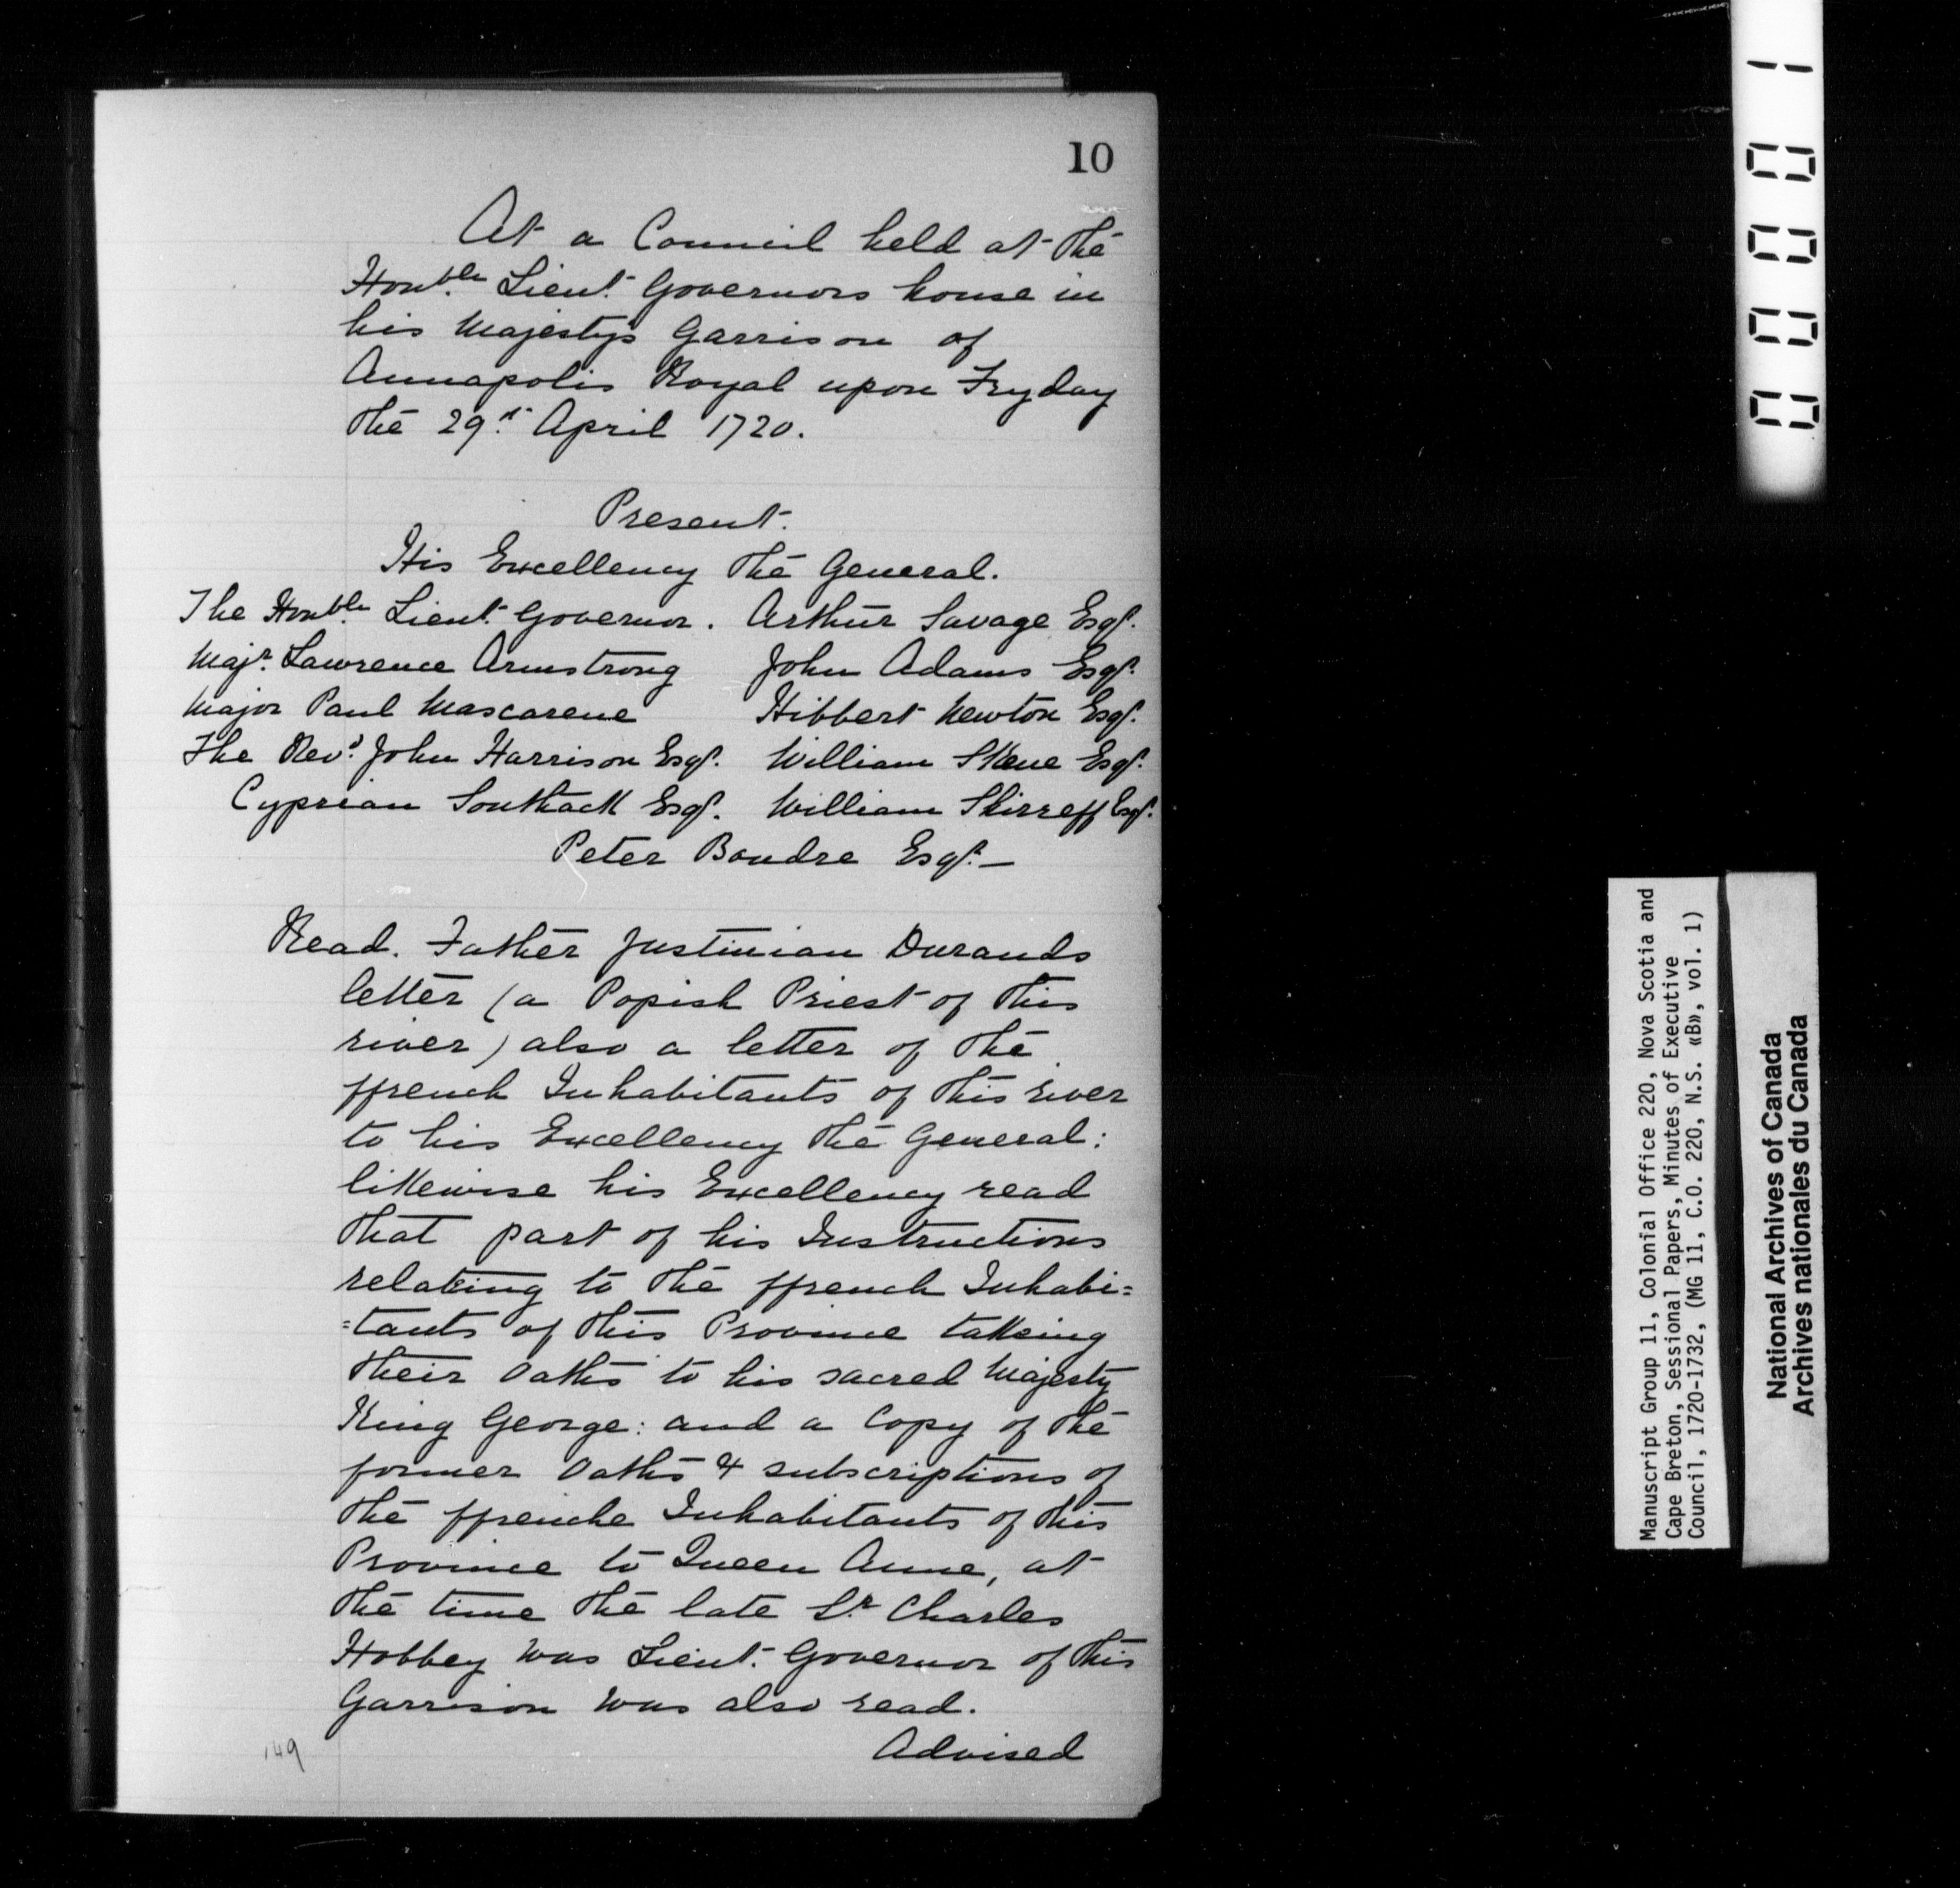 10
At a Council held at the
Honble. Lieut. Governors house in
his Majestys Garrison of
Annapolis Royal upon Fryday
the 29.th April 1720.
Present.
His Excellency the General.
The Honble. Lieut. Governor. Arthur Savage Esqr.
Majr. Lawrence Armstrong John Adams Esqr.
Major Paul Mascarene Hibbert Newton Esqr.
The Revd. John Harrison Esqr. William Skene Esqr.
Cyprian Southack Esqr. William Shirreff Esqr.
Peter Boudre Esqr.—
Read. Father Justinian Durands
letter (a Popish Priest of this
river) also a letter of the
ffrench Inhabitants of this river
to his Excellency the General:
likewise his Excellency read
that part of his Instructions
relating to the ffrench Inhabi=
=tants of this Province takeing
their Oaths to his sacred Majesty
King George: and a Copy of the
former Oaths & subscriptions of
the ffrenche Inhabitants of this
Province to Queen Anne, at
the time the late Sr. Charles
Hobbey was Lieut. Governor of this
Garrison was also read.
Advised
149
00001
Manuscript Group 11, Colonial Office 220, Nova Scotia and
Cape Breton, Sessional Papers, Minutes of Executive
Council, 1720-1732, (MG 11, C.O. 220, N.S. «B», vol. 1)
National Archives of Canada
Archives nationales du Canada